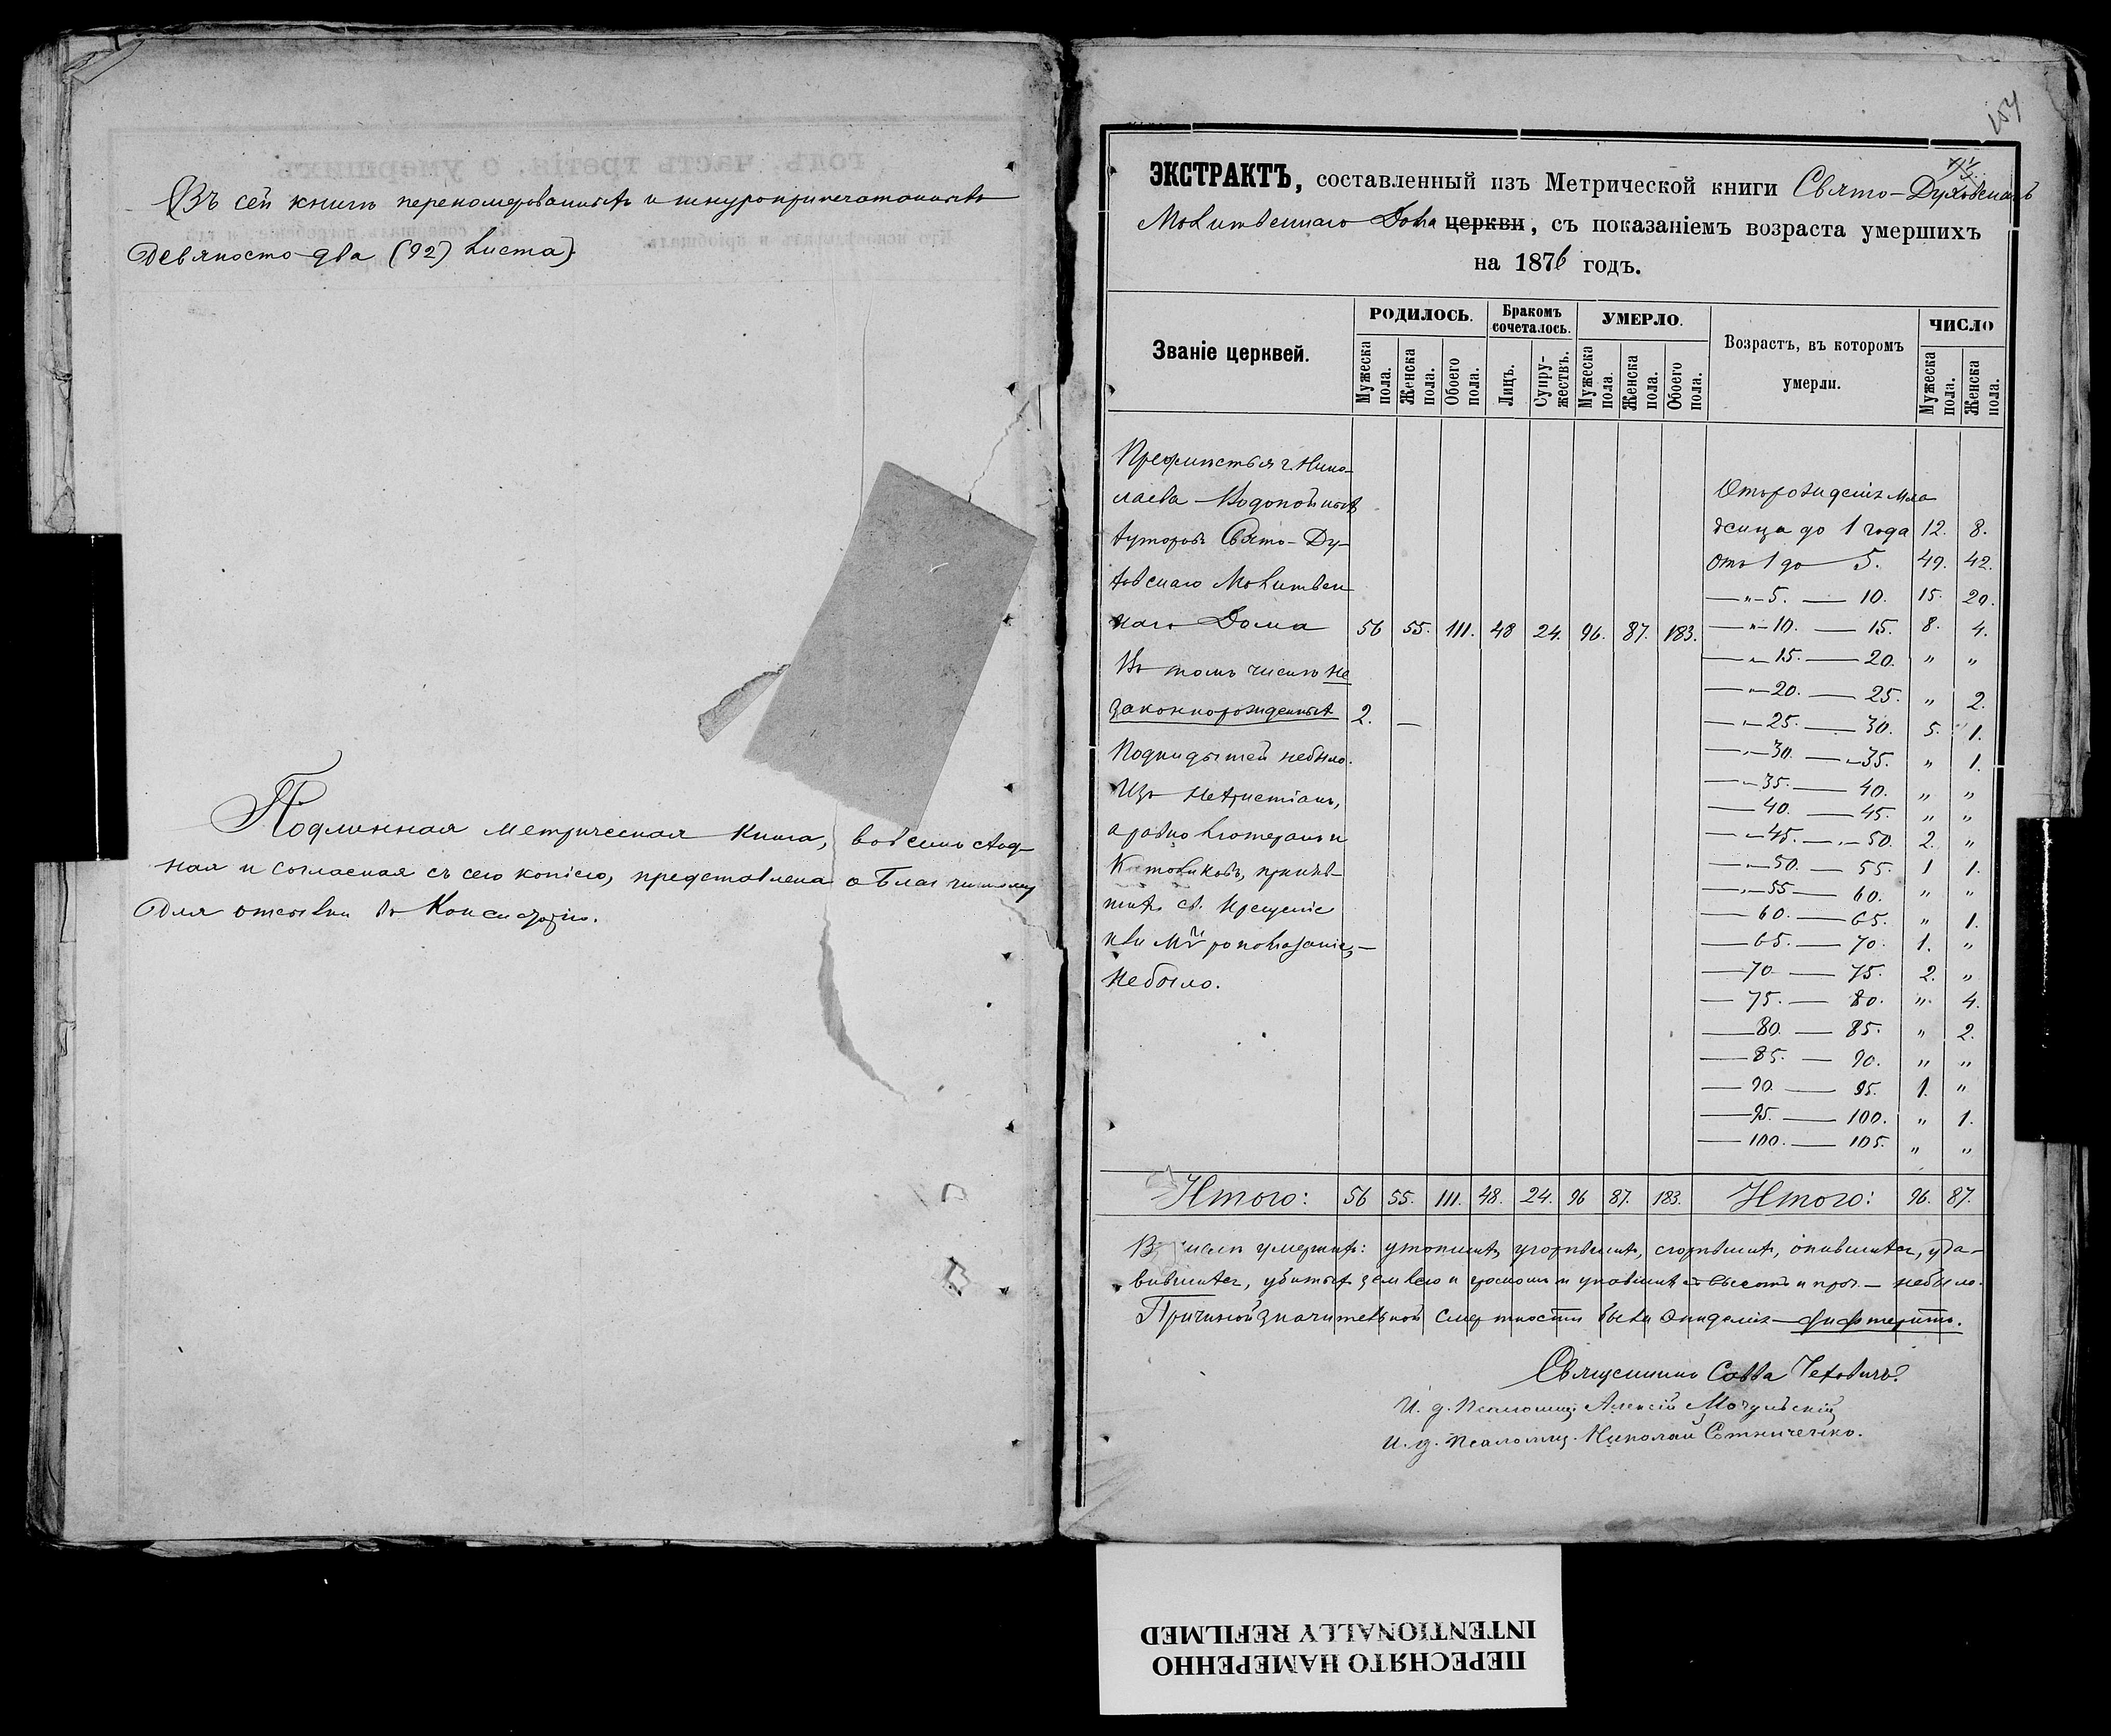 Въ сей книгѣ перепомерованныхъ и шнуроприпечатанныхъ
девяносто два (92) листа).
Подлинная метрическая книга, во всемъ сход-
ная и согласная съ сею копіею, представлена о. Благочинному
для отсылки въ Консисторію.
154
ЭКСТРАКТЪ, составленный изъ Метрической книги Свято-Духовскаго
Молитвеннаго Дома церкви, съ показаніемъ возраста умершихъ
на 1876 годъ.
Званіе церквей.
РОДИЛОСЬ.
Бракомъ сочеталось.
УМЕРЛО.
Возрастъ, въ которомъ умерли.
ЧИСЛО
Мужеска пола.
Женска пола.
Обоего пола.
Лицъ.
Супружествъ.
Мужеска пола.
Женска пола.
Обоего пола.
Мужеска пола.
Женска пола.
Предмѣстья г. Нико-
лаева Водопойныхъ
хуторовъ Свято-Ду-
ховскаго Молитвен
наго Дома 56 55. 111. 48 24. 96. 87. 183.
Въ томъ числѣ не
законнорожденныхъ 2. —
Подкидышей небыло.
Изъ нехристіанъ,
а равно лютеранъ и
Католиковъ, приняв-
шихъ св. Крещеніе
или Мѵропомазаніе,—
небыло.
Отъ рожденія мла
денца до 1 года 12. 8.
Отъ 1 до 5. 49. 42.
—"—5. — 10. 15. 20.
—"—10. — 15. 8. 4.
—"—15. — 20. " "
—"—20. — 25. " 2.
—"—25. — 30. 5. 1.
—"—30. — 35. " 1.
—"—35. — 40. " "
—40. — 45. " "
—"—45. — 50. 2. "
—"—50. — 55. 1 1.
—"—55 — 60. " "
—60. — 65. " 1.
—65. — 70. 1. "
—70 — 75. 2. "
—75. — 80. " 4.
—80. — 85. " 2.
—85. — 90. " "
—90 — 95. 1. "
—95. — 100. " 1.
—100. — 105. " "
Итого: 56 55. 111. 48. 24. 96 87. 183. Итого: 96. 87.
В числѣ умершихъ: утопшихъ, угорѣвшихъ, сгорѣвшихъ, опившихся, уда-
вившихся, убитыхъ землею и громомъ и упавшихъ съ высотъ и проч.— небыло.
Причиной значительной смертности была эпидемія—дифтеритъ.
Священникъ Савва Чеховичъ.
И. д. Псаломщ. Алексій Мочульскій
И. д. псаломщ. Николай Сотниченко.
ПЕРЕСНЯТО НАМЕРЕННО
INTENTIONALLY REFILMED